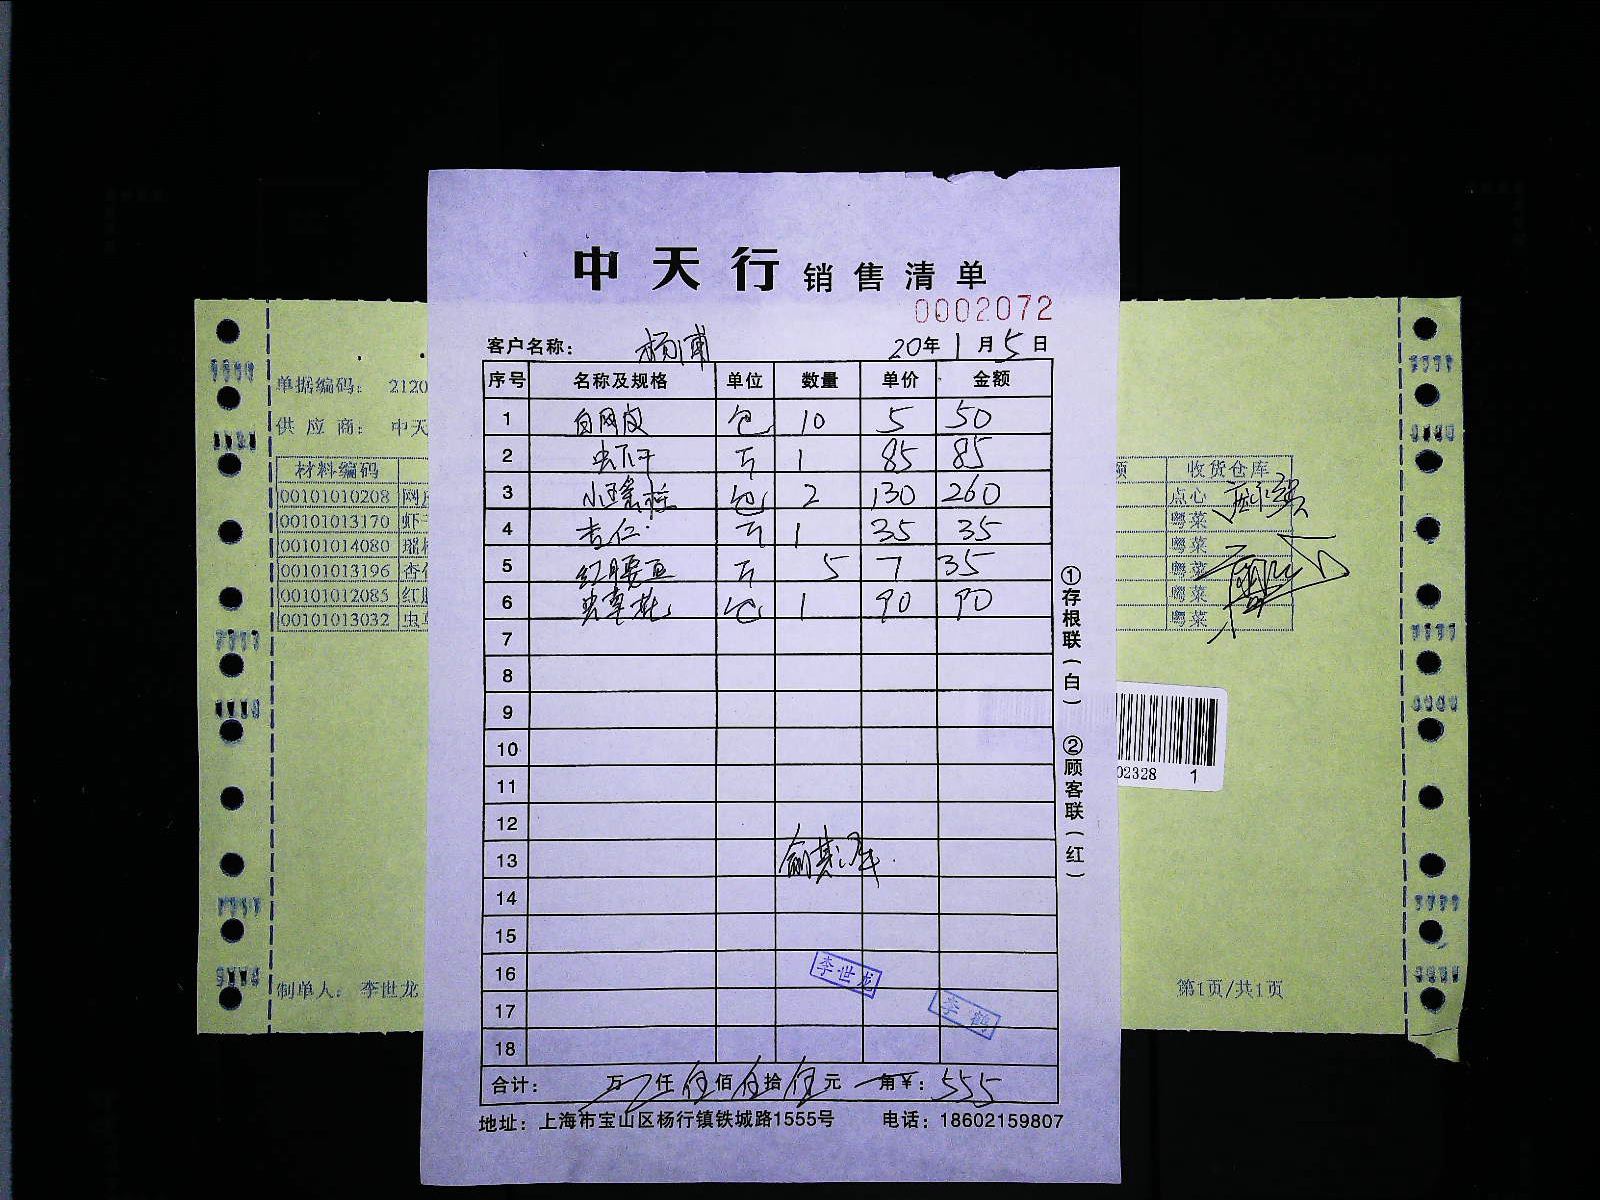 中天行 销售清单
0002072
客户名称： 杨浦 20年1月5日
序号 名称及规格 单位 数量 单价 金额
1 白网皮 包 10 5 50
2 虫下干 斤 1 85 85
3 小瑶柱 包 2 130 260
4 杏仁 斤 1 35 35
5 红腰豆 斤 5 7 35
6 虫草花 包 1 90 90
7
8
9
10
11
12
13
14
15
16 李世龙
17 李鹤
18
合计： 万 仟 伍 佰 伍 拾 伍 元 角 ¥： 555
地址：上海市宝山区杨行镇铁城路1555号 电话：18602159807
①存根联（白） ②顾客联（红）
单据编码： 2120
供应商： 中天
材料编码 收货仓库
00101010208 网 点心
00101013170 虾 粤菜
00101014080 瑶 粤菜
00101013196 杏 粤菜
00101012085 红 粤菜
00101013032 虫 粤菜
02328 1
制单人： 李世龙 第1页/共1页